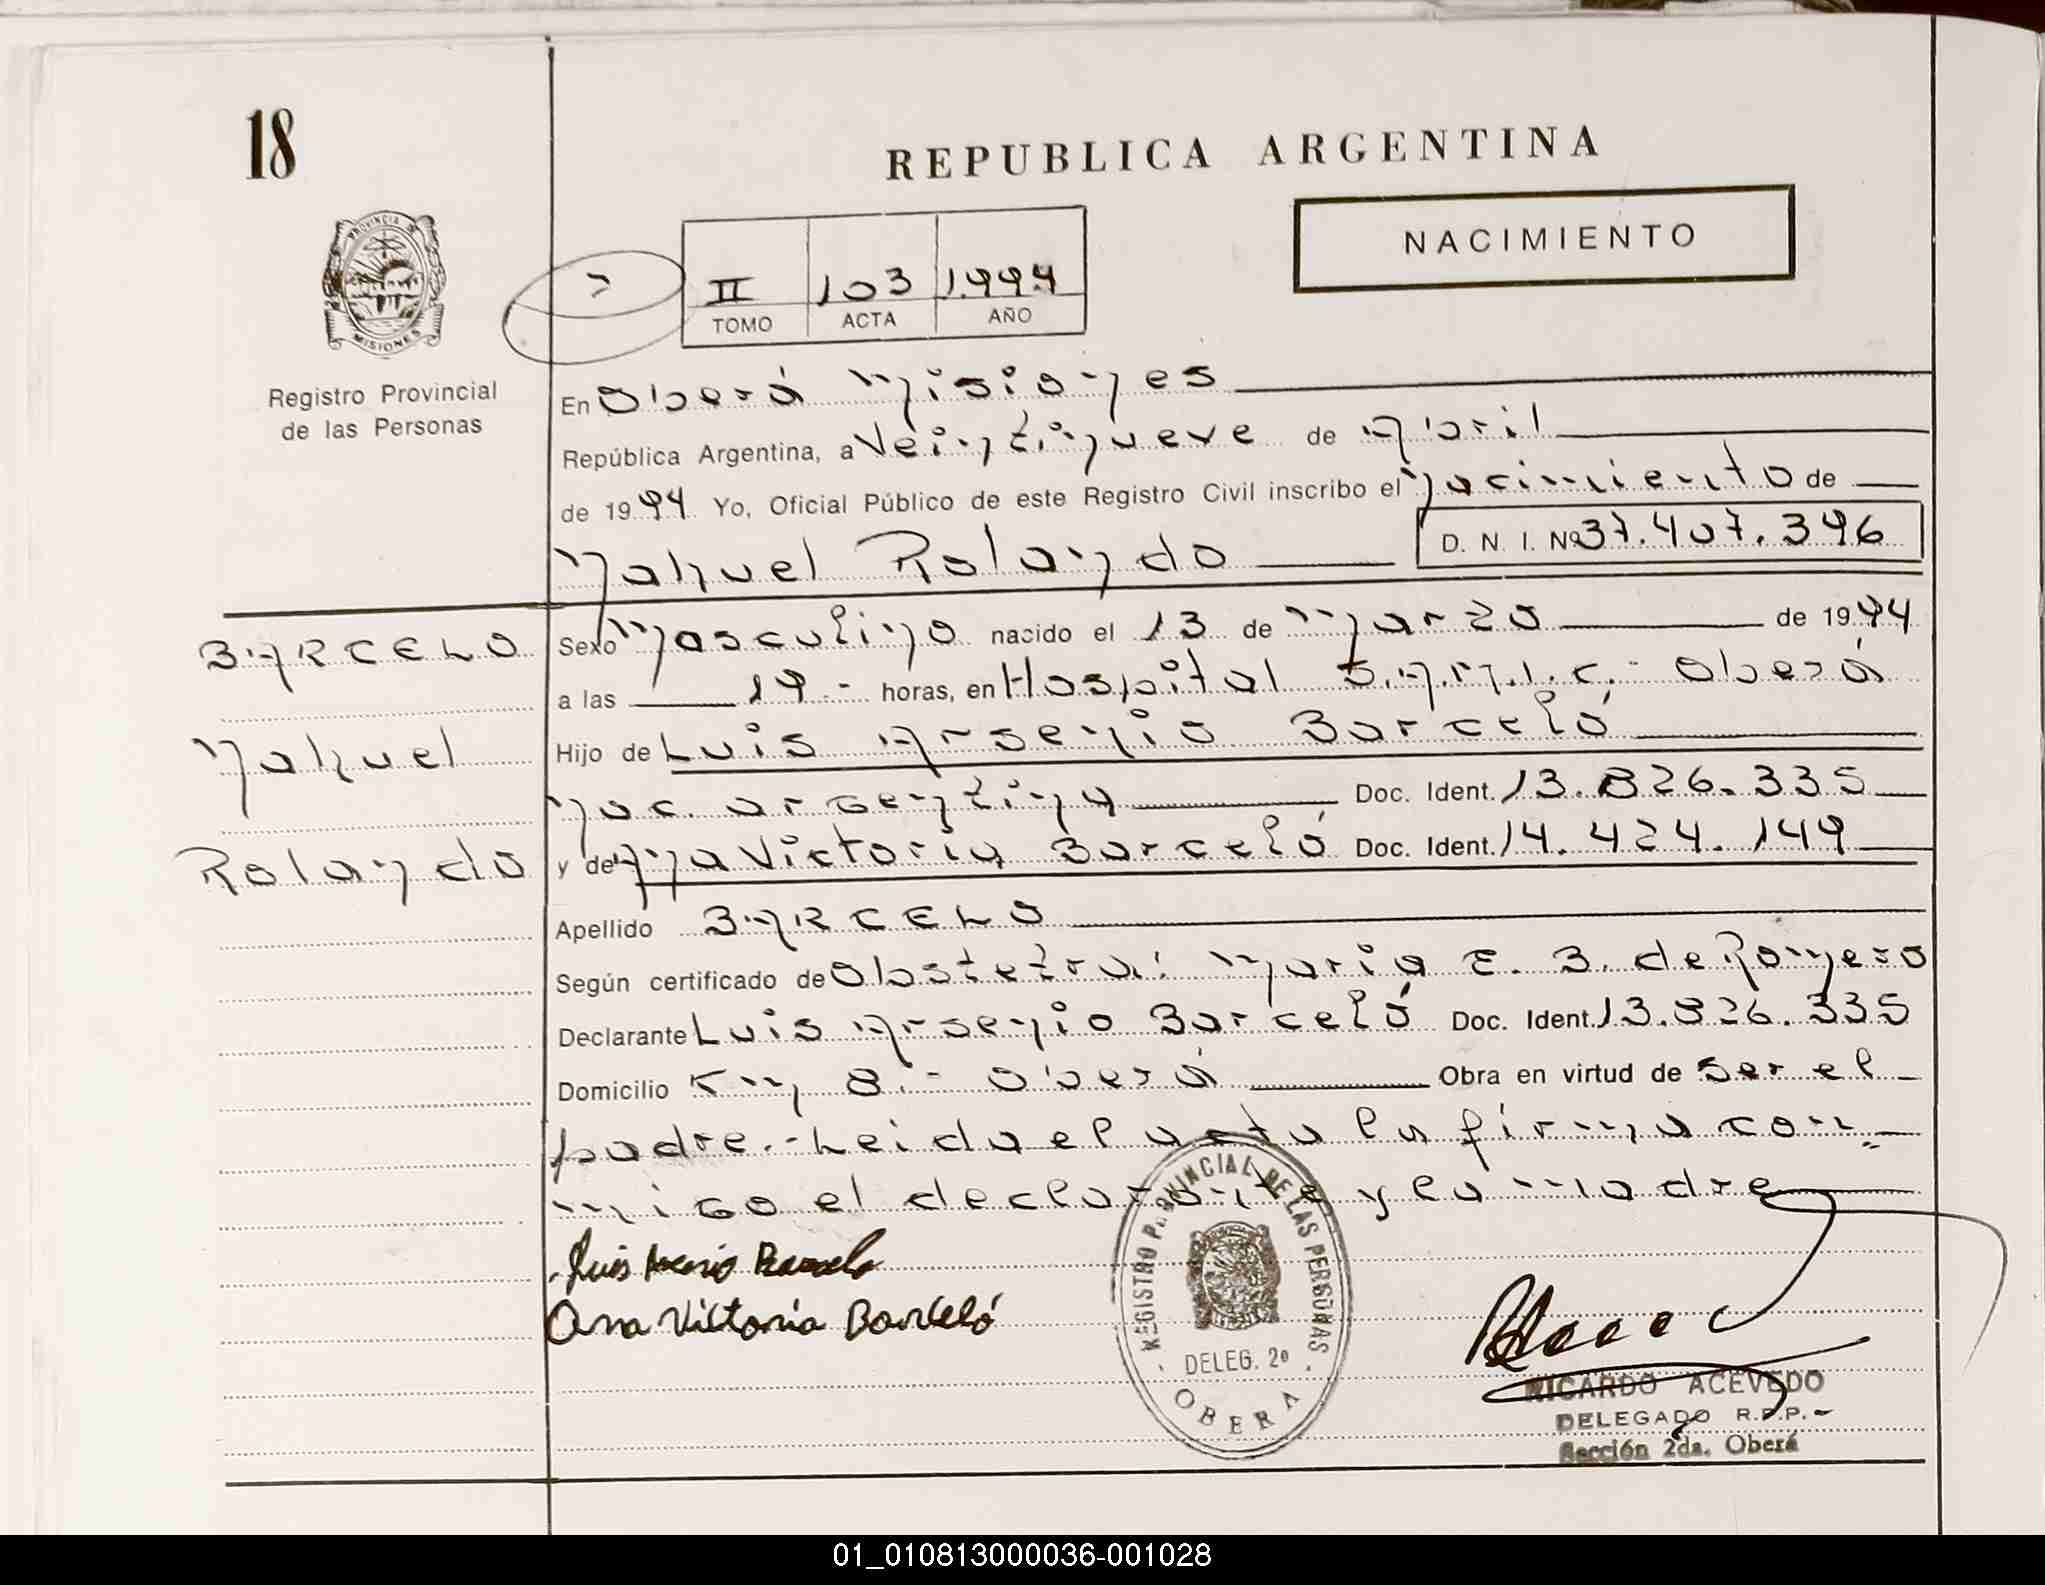 18
REPUBLICA ARGENTINA
NACIMIENTO
PROVINCIA DE
MISIONES
Registro Provincial
de las Personas
II 103 1.994
TOMO ACTA AÑO
En Oberá Misiones
República Argentina, a Veintinueve de Abril
de 1994 Yo, Oficial Público de este Registro Civil inscribo el Nacimiento de
Nahuel Rolando D. N. I. Nº 37.407.396
BARCELO
Nahuel
Rolando
Sexo Masculino nacido el 13 de Marzo de 1994
a las 19.- horas, en Hospital S.A.M.I.C.- Oberá
Hijo de Luis Arsenio Barceló
Nac. argentina Doc. Ident. 13.826.335
y de Ana Victoria Barceló Doc. Ident. 14.424.149
Apellido BARCELO
Según certificado de Obstetra: María E. B. de Romero
Declarante Luis Arsenio Barceló Doc. Ident. 13.826.335
Domicilio Km 8.- Oberá Obra en virtud de ser el
padre.- Leída el acta la firma con
migo el declarante y la madre
Luis Arsenio Barcelo
Ana Victoria Barceló
REGISTRO PROVINCIAL DE LAS PERSONAS
DELEG. 2º
OBERA
RICARDO ACEVEDO
DELEGADO R.P.P.
Sección 2da. Oberá
01_010813000036-001028